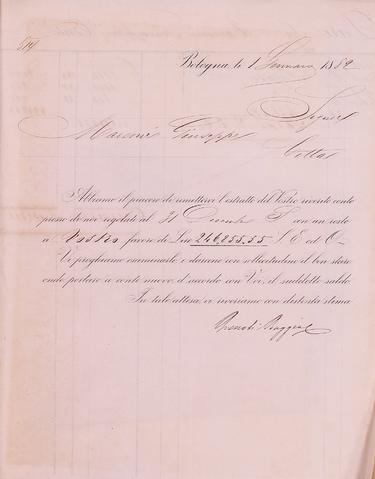 Bologna, li 1 Gennaro 1882
Signor
Marconi Giuseppe
Abbiamo il piacere di rimettervi l'estratto del Vostro riverito conto
presso di noi regolato al 31 Decembre con un resto
a Vostro favore di Lire 246,255.55 S. E. ed O.
Vi preghiamo esaminarlo e darcene con sollecitudine il ben stare
onde portare a conto nuovo d'accordo con Voi, il suddetto saldo.
In tale attesa, vi riveriamo con distinta stima